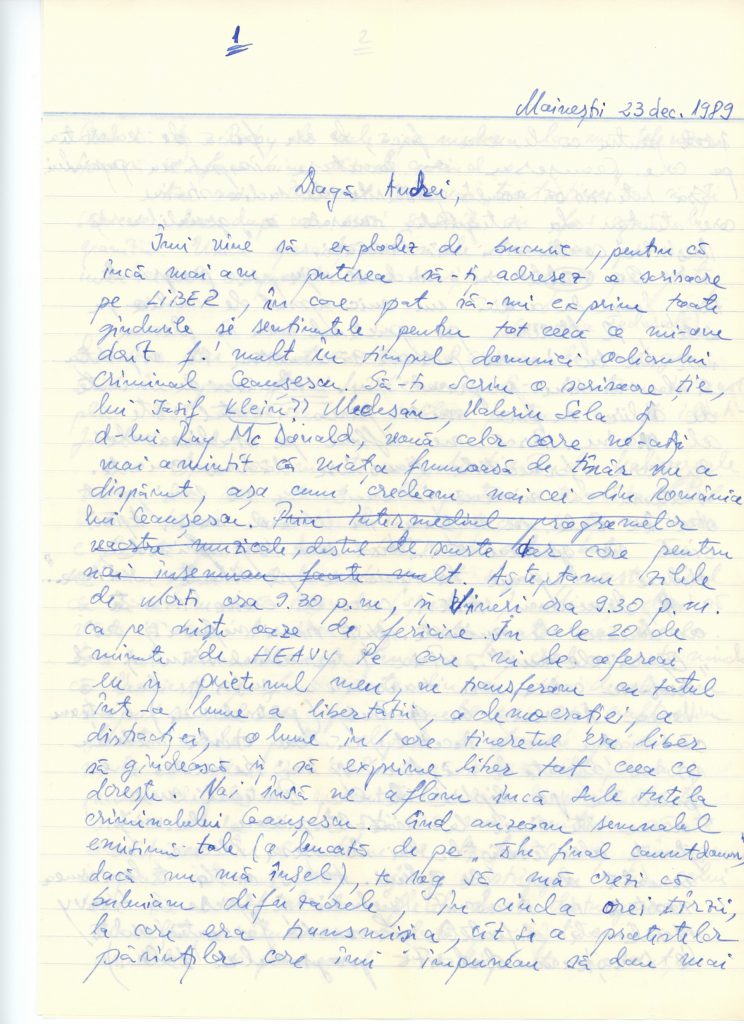 1
2
Mainești 23 dec. 1989
Dragă Andrei,
Îmi vine să explodez de bucurie, pentru că
încă mai am puterea să-ți adresez o scrisoare
pe LIBER, în care pot să-mi exprim toate
gîndurile și sentimentele pentru tot ceea ce mi-am
dorit f. mult în timpul domniei odiosului
criminal Ceaușescu. Să-ți scriu o scrisoare ție,
lui Iosif Klein?? Medeșan, Valeriu Sela și
d-lui Ray Mc Donald, vouă celor care ne-ați
mai amintit că viața frumoasă de tînăr nu a
dispărut, așa cum credeam noi cei din România
lui Ceaușescu. Prin intermediul programelor
voastre muzicale, destul de scurte dar care pentru
noi însemnau foarte mult. Așteptam zilele
de Marți ora 9.30 p.m, și Vineri ora 9.30 p.m.
ca pe niște oaze de fericire. În cele 20 de
minute de HEAVY pe care ni le ofereai
eu și prietenul meu, ne transferam cu totul
într-o lume a libertății, a democrației, a
distracției, o lume în care tineretul era liber
să gîndească și să exprime liber tot ceea ce
dorește. Noi însă ne aflam încă sub tutela
criminalului Ceaușescu. Cînd auzeam semnalul
emisiunii tale (o bucată de pe „The final countdown”,
dacă nu mă înșel), te rog să mă crezi că
bubuiam difuzoarele, în ciuda orei tîrzii,
la care era transmisia, cît și a protestelor
părinților care îmi impuneau să dau mai